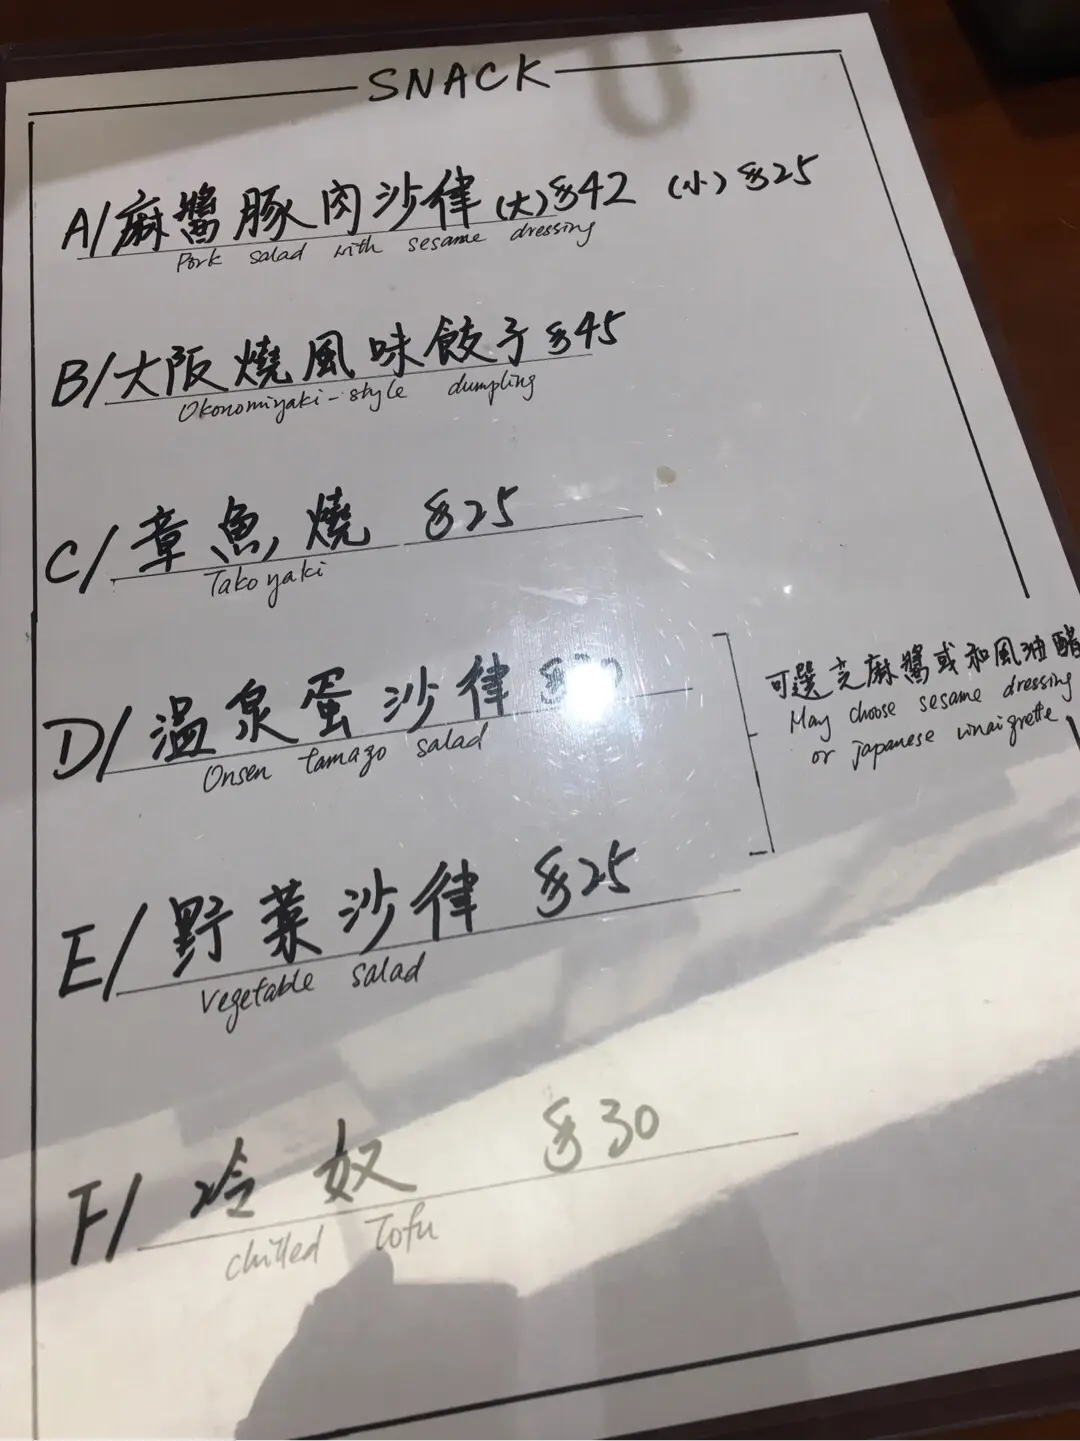 SNACK
A/麻醬豚肉沙律(大)$42 (小)$25
Pork salad with sesame dressing
B/大阪燒風味餃子$45
Okonomiyaki-style dumpling
C/章魚燒 $25
Takoyaki
D/溫泉蛋沙律
Onsen tamago salad
可選芝麻醬或和風油醋
May choose sesame dressing
or japanese vinaigrette
E/野菜沙律 $25
Vegetable salad
F/冷奴 $30
chilled Tofu